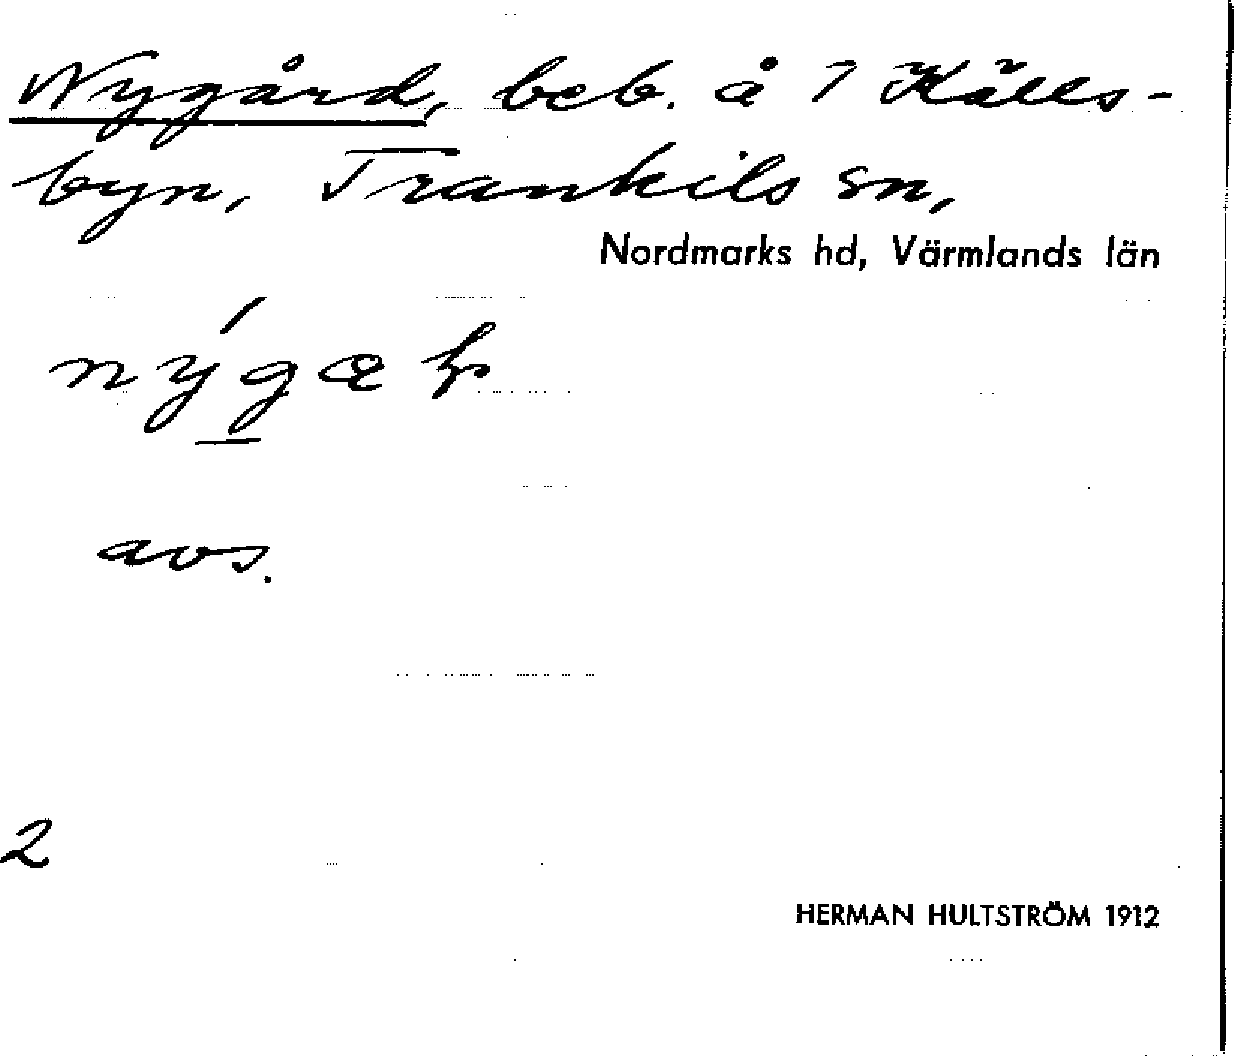 Nygård, beb. å 7 Källs-
byn, Trankils sn,
Nordmarks hd, Värmlands län
avs.
2
HERMAN HULTSTRÖM 1912